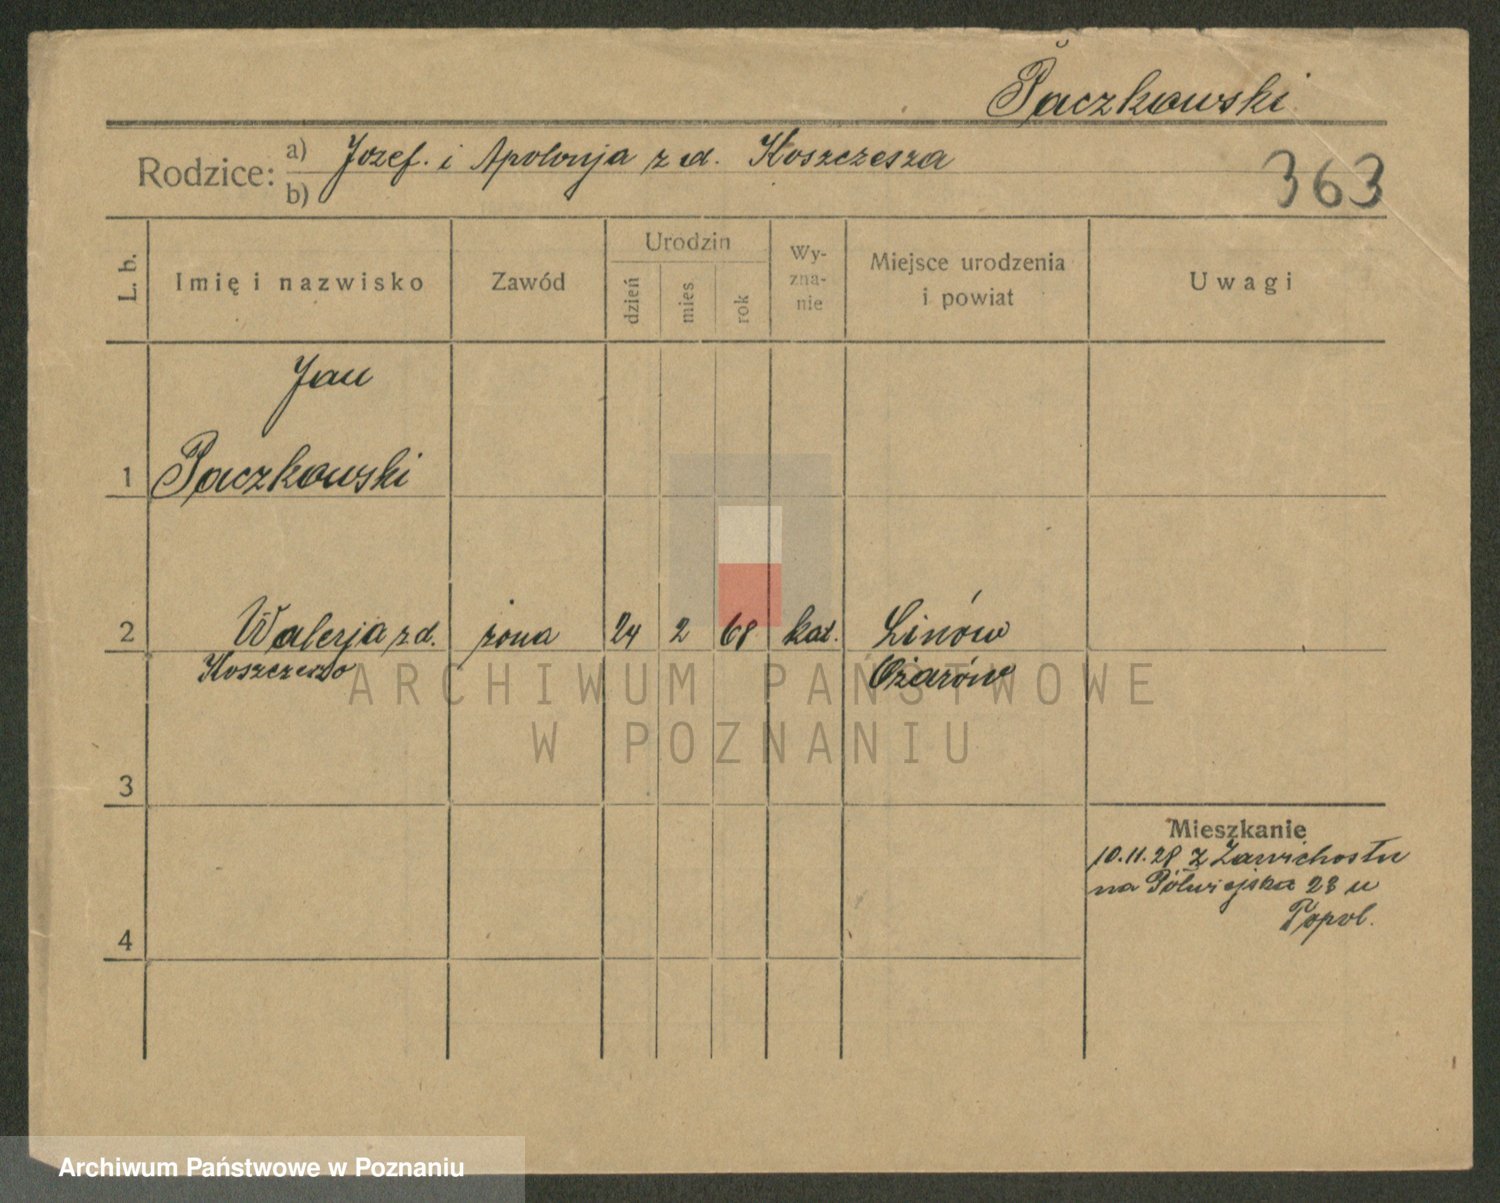 Paczkowski
Rodzice: a) Jozef. i Apolonja z d. Koszczesza
b)
363
L. b.
Imię i nazwisko
Zawód
Urodzin
dzień
mies
rok
Wy-
zna-
nie
Miejsce urodzenia
i powiat
Uwagi
Jan
1 Paczkowski
2 Walerja z d. żona 24 2 68 kat. Linów
Koszczesza Ożarów
ARCHIWUM PAŃSTWOWE
W POZNANIU
3
Mieszkanie
10.11.28 z Zawichostu
na Półwiejska 28 u
Popol.
4
Archiwum Państwowe w Poznaniu